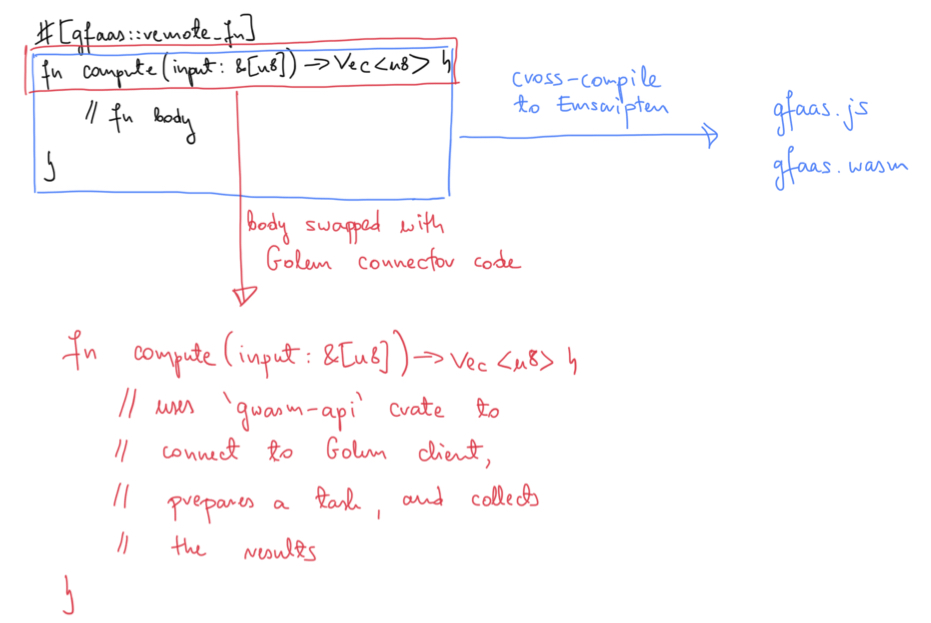 #[gfaas::remote_fn]
fn compute(input: &[u8]) → Vec<u8> {
// fn body
}
cross-compile
to Emscripten
gfaas.js
gfaas.wasm
body swapped with
Golem connector code
fn compute(input: &[u8]) → Vec <u8> {
// uses `gwasm-api` crate to
// connect to Golem client,
// prepares a task, and collects
// the results
}